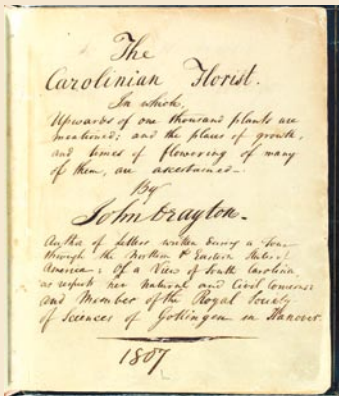 The
Carolinian Florist.
In which,
Upwards of one thousand plants are
mentioned; and the places of growth,
and times of flowering of many
of them, are ascertained—.
By
John Drayton—
Author of letters written during a Tour
through the Northern & Eastern States of
America: Of a View of South Carolina,
as respects her natural and Civil Concerns:
and Member of the Royal Society
of Sciences of Gottingen in Hanover.
1807